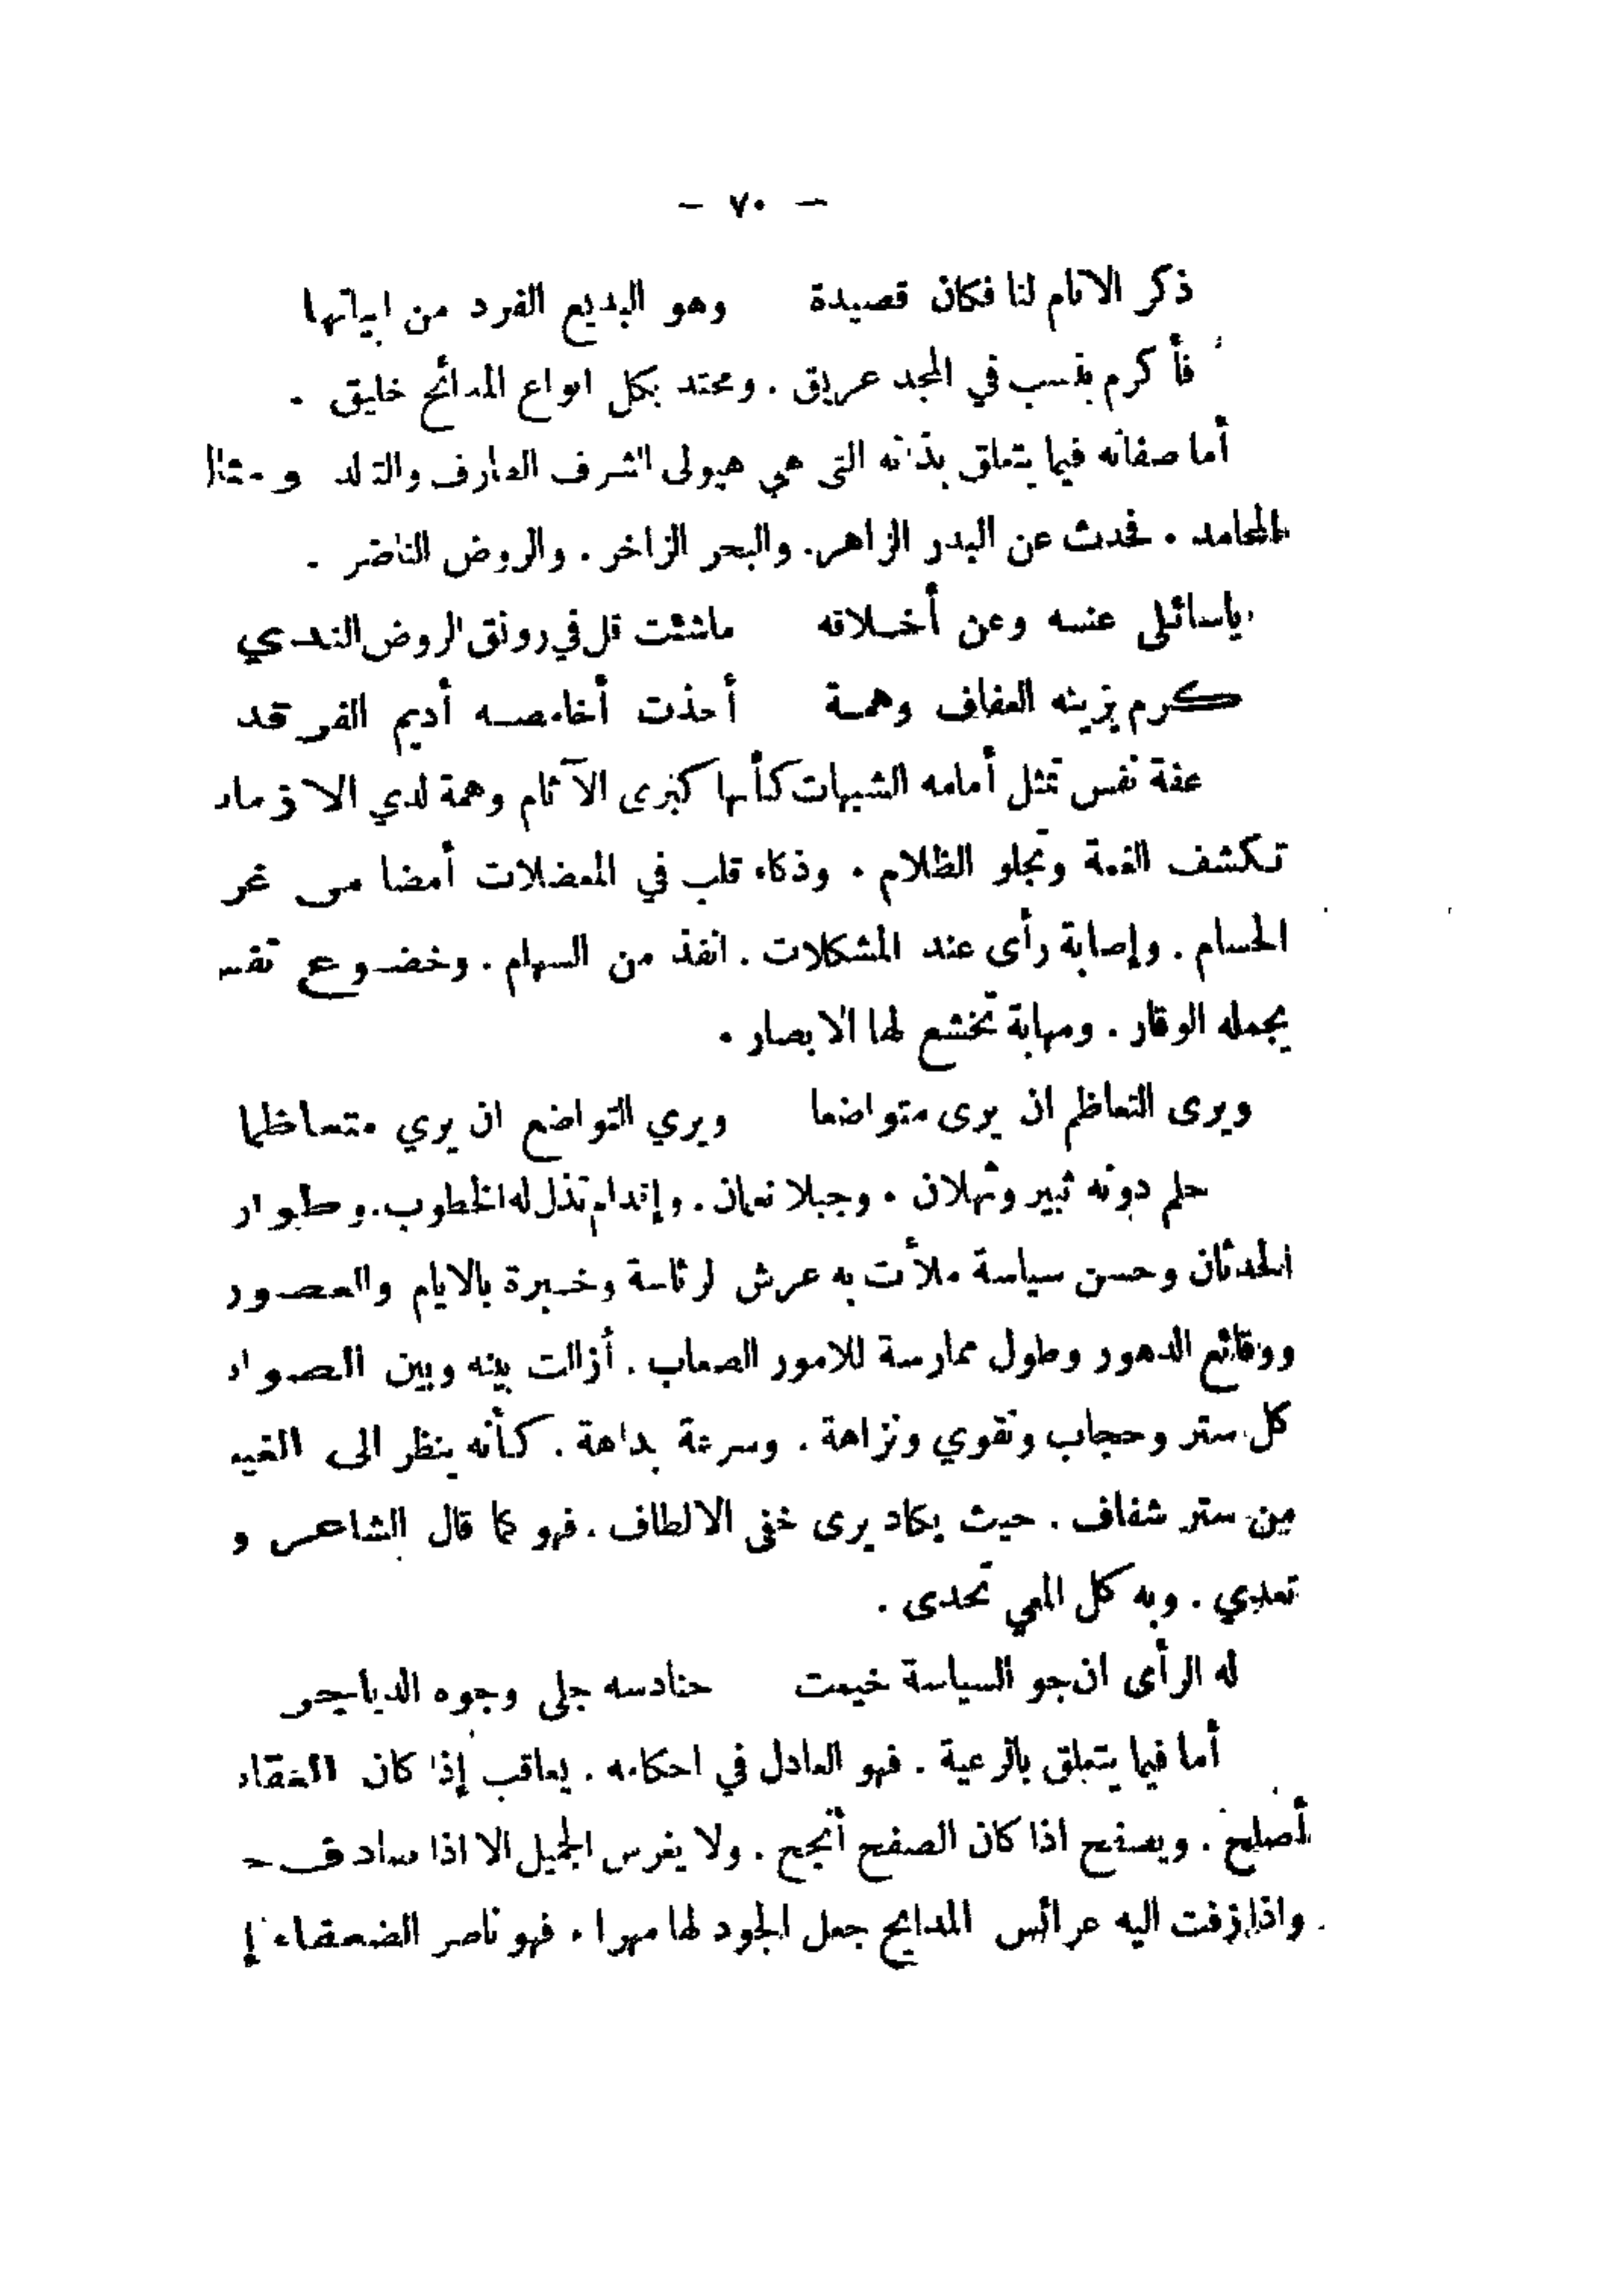 — ٧٠ —
ذكر الانام لنا فكان قصيدة وهو البديع الفرد من ابياتها
فأكرم بنسب في المجد عريق . ومحتد بكل انواع المدائح خليق .
أما صفاته فيما يتعلق بذاته التى هي هيولى الشرف الطارف والتالد ومثال
المحامد . فحدث عن البدر الزاهر. والبحر الزاخر . والروض الناضر .
ياسائلى عنه وعن أخلاقه ماشئت قل في رونق الروض الندي
كرم يزينه العفاف وهمة أحذت أخامصه أديم الفرقد
عفة نفس تمثل أمامه الشبهات كأنها كبرى الآثام وهمة لدي الازمات
تكشف الغمة وتجلو الظلام . وذكاء قلب في المعضلات أمضا من غر
الحسام . وإصابة رأى عند المشكلات . انفذ من السهام . وخضوع نفس
يجمله الوقار . ومهابة تخشع لها الابصار .
ويرى التعاظم ان يرى متواضعا ويري التواضع ان يري متعاظما
حلم دونه ثبير وثهلان . وجبلا نعمان . وإقدام تذل له الخطوب . وطوار
الحدثان وحسن سياسة ملأت به عرش الرئاسة وخبرة بالايام والعصور
ووقائع الدهور وطول ممارسة للامور الصعاب . أزالت بينه وبين الصوا
كل ستر وحجاب وتقوي ونزاهة . وسرعة بداهة . كأنه ينظر الى الغيب
من ستر شفاف . حيث يكاد يرى خفى الالطاف . فهو كما قال الشاعر و
تعدي . وبه كل المعي تحدى .
له الرأى ان جو السياسة خيمت حنادسه جلى وجوه الدياجر
أما فيما يتعلق بالرعية . فهو العادل في احكامه . يعاقب إذا كان العقاب
أصلح . ويصفح اذا كان الصفح أنجح . ولا يغرس الجميل الا اذا صادف
واذا زفت اليه عرائس المدايح جعل الجود لها مهرا . فهو ناصر الضعفاء إ